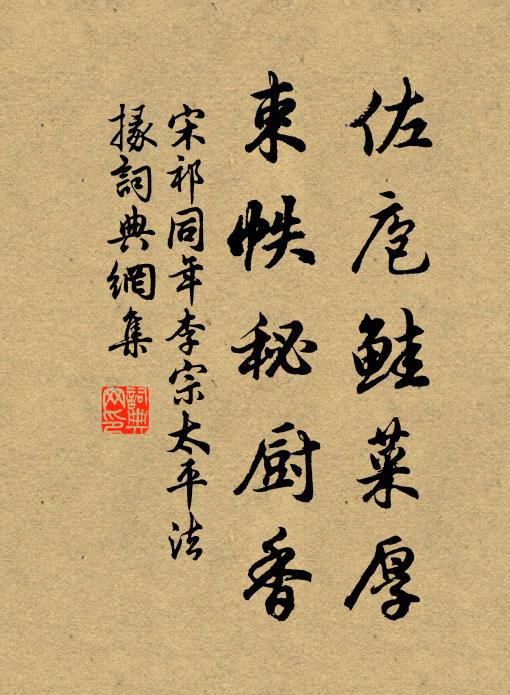 佐庖鲑菜厚
束帙秘厨香
宋祁同年李宗太平法
掾詞典網集
詞典網印